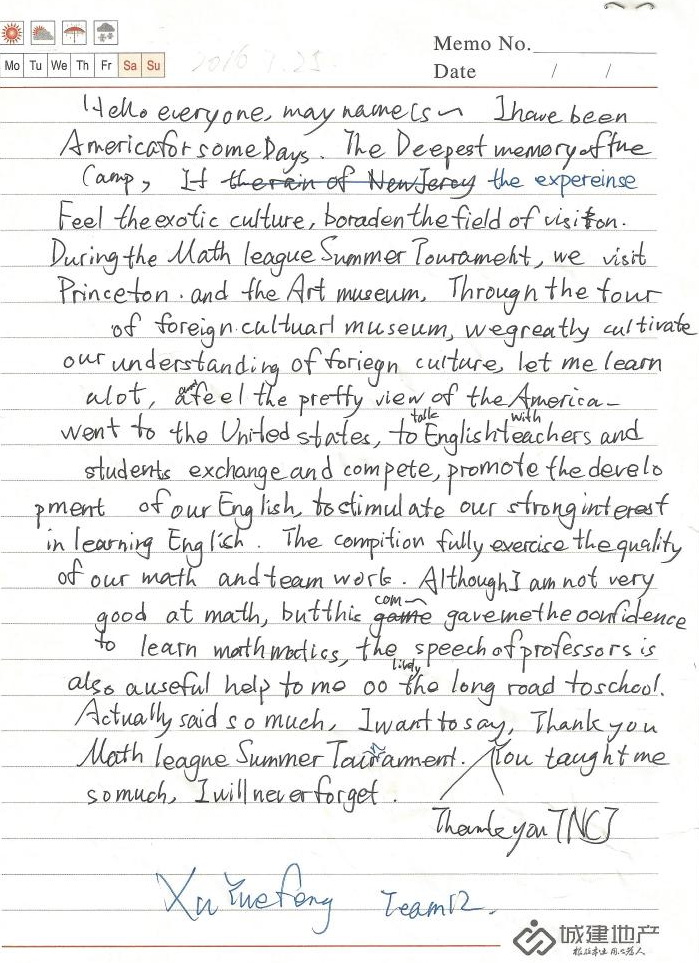 Mo Tu We Th Fr Sa Su
2016 7.25
Memo No.
Date / /
Hello everyone, may name is~ I have been
America for some Days. The Deepest memory of the
Camp, It the rain of New Jerey the expereinse
Feel the exotic culture, boraden the field of visition.
During the Math league Summer Tourament, we visit
Princeton. and the Art museum, Through the tour
of foreign cultuarl museum, we greatly cultivate
our understanding of foriegn culture, let me learn
alot, and feel the pretty view of the America-
went to the United states, to talk English with teachers and
students exchange and compete, promote the develo
pment of our English, to stimulate our strong interest
in learning English. The compition fully exercise the quality
of our math and team work. Although I am not very
good at math, but this game com~ gave me the confidence
to learn mathmatics, the speech of professors is
also a useful help to me on the lively long road to school.
Actually said so much, I want to say, Thank you
Math league Summer Taurament. You taught me
so much, I will never forget.
Thank you TNCJ
Xu Yuefeng Team 12.
城建地产